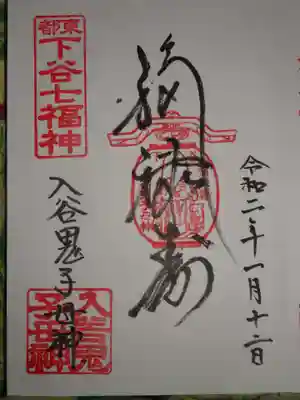 東都
下谷七福神
福禄寿
令和二年一月十二日
入谷鬼子母神
入谷鬼子母神